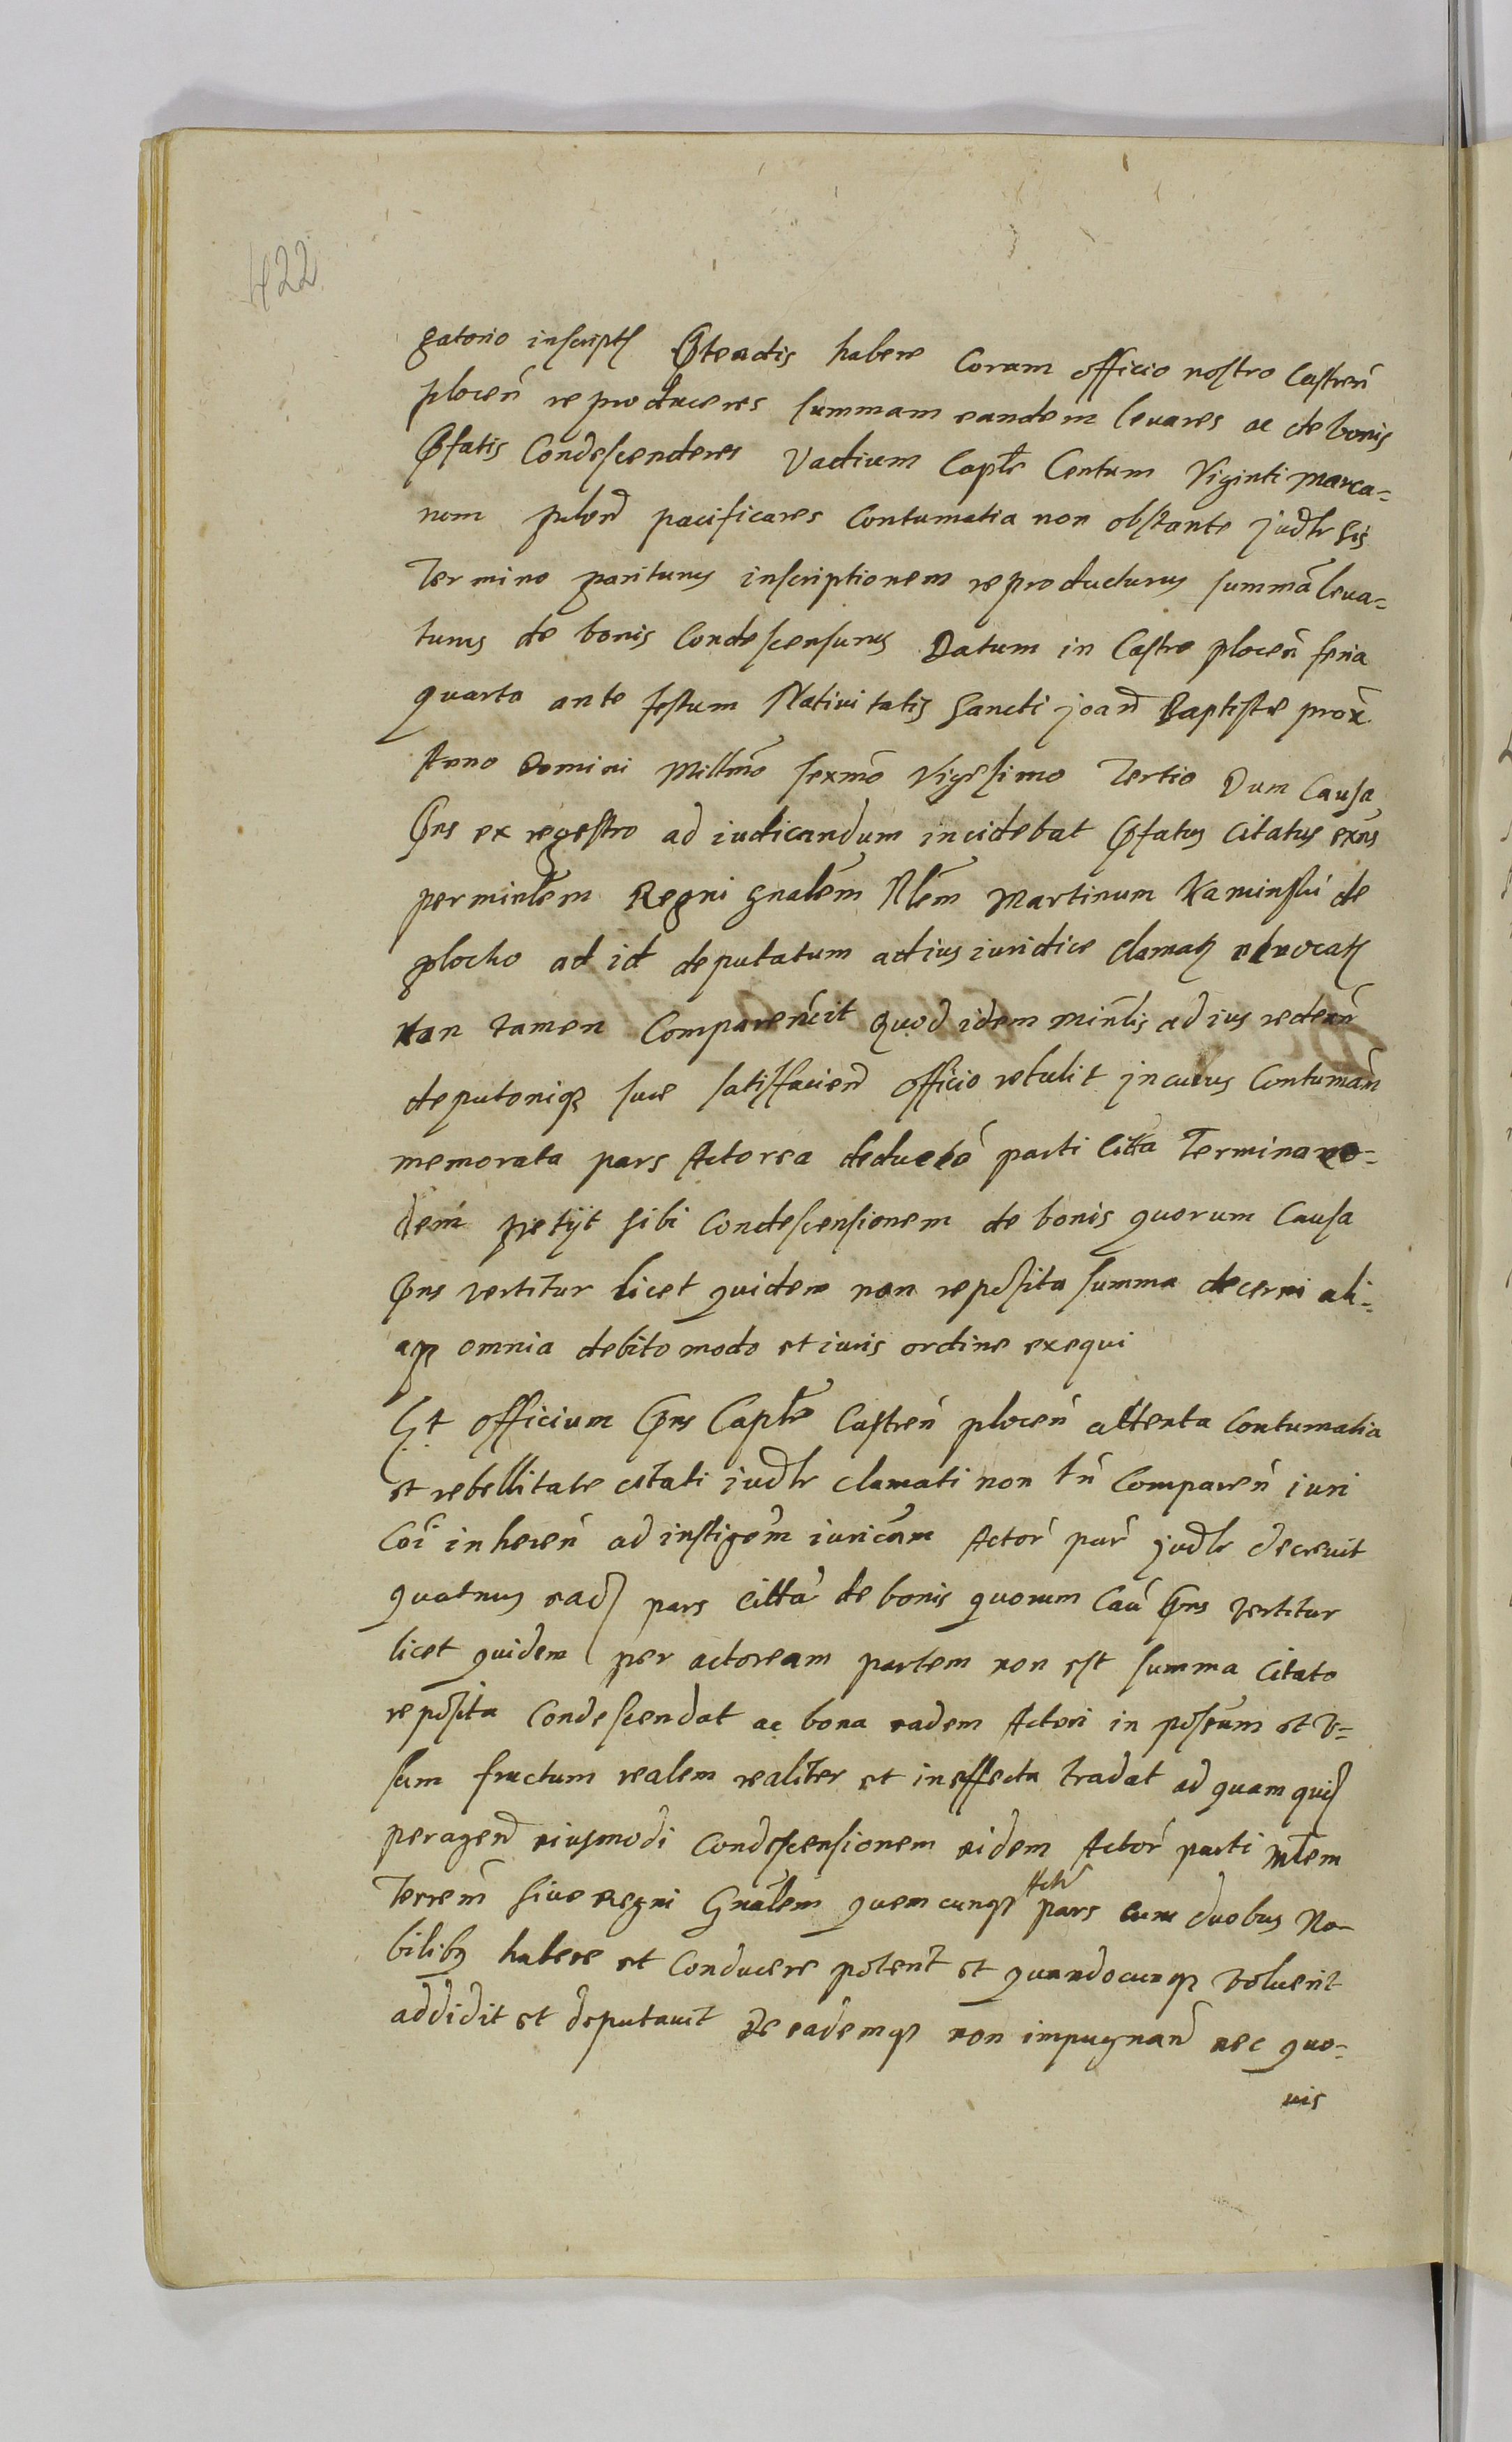 422
gatorio inscript Prtenactis habere Coram officio nostro Castren̄
plocen̄ reproduceres summam eandem levares ac de bonis
Prfatis Condescenderes Vadium Capl̃e Centum Viginti marca=
rum pacificares Contumatia non obstante judl̃r sis
Termino pariturus inscriptionem reproducturus summã leva=
turus de bonis Condescensurus Datum in Castro plocen̄ feria
quarta ante festum Nativitatis Sancti joan̄ Baptistæ prox̃
Anno Domini Millm̃o sexm̃o Vigesimo Tertio Dum Causa
Pr̃ns ex regestro ad iudicandum incidebat Prfatus Citatus
per minl̃em Regni Gnãlem Nl̃em Martinum Kaminski de
plocko ad id deputatum ad ius iuridice clamat
non tamen Comparencit Quod idem minl̃is ad ius redeun̄
deputoniq3 suæ satisfacien̄ officio retulit in cuius Contuman̄
memorata pars Actorea deducto parti Citta Termina ro=
dem petijt sibi Condescensionem de bonis quorum Causa
Prns vertitur licet quidem non reposita summa decerni ali=
aq3 omnia debito modo et iuris ordine exequi
Et officium Prns Capl̃e Castren̄ plocen̄ attenta Contumatia
et rebellitate citati iudl̃r clamati non tñ Comparen̄ iuri
Coĩ inheren̄ ad instigõem iuricam Actor̃ par̃ judl̃r decrevit
quatnus ead pars Citta de bonis quorum Caũ Prns vertitur
licet quidem per actoream partem non est summa Citato
reposita Condescendat ac bona eadem Actori in possum et V=
sum fructum realem realiter et in effectu tradat ad quam quid
peragen̄ eiusmodi Condescensionem eidem Actor̃ parti ml̃em
Terrẽm sive Regni Gnãlem quemcunq3 Actr̃ pars cum duobus No=
bilib3 habere et Conducere poterit et quandocunq3 Voluerit
addidit et deputavit De eademq3 non impugnan̄ nec quo=
vis